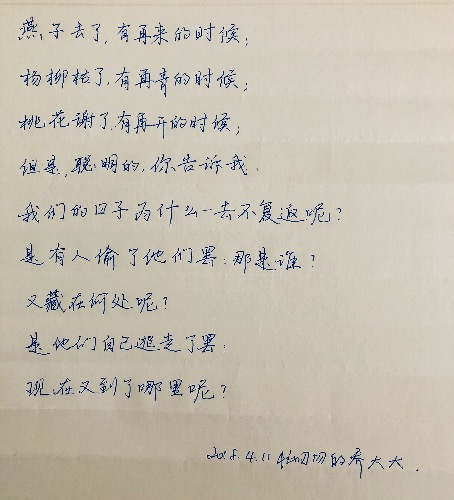 燕子去了,有再来的时候;
杨柳枯了,有再青的时候;
桃花谢了,有再开的时候;
但是,聪明的,你告诉我.
我们的日子为什么一去不复返呢?
是有人偷了他们罢:那是谁?
又藏在何处呢?
是他们自己逃走了罢.
现在又到了哪里呢?
2018.4.11 的乔大大.